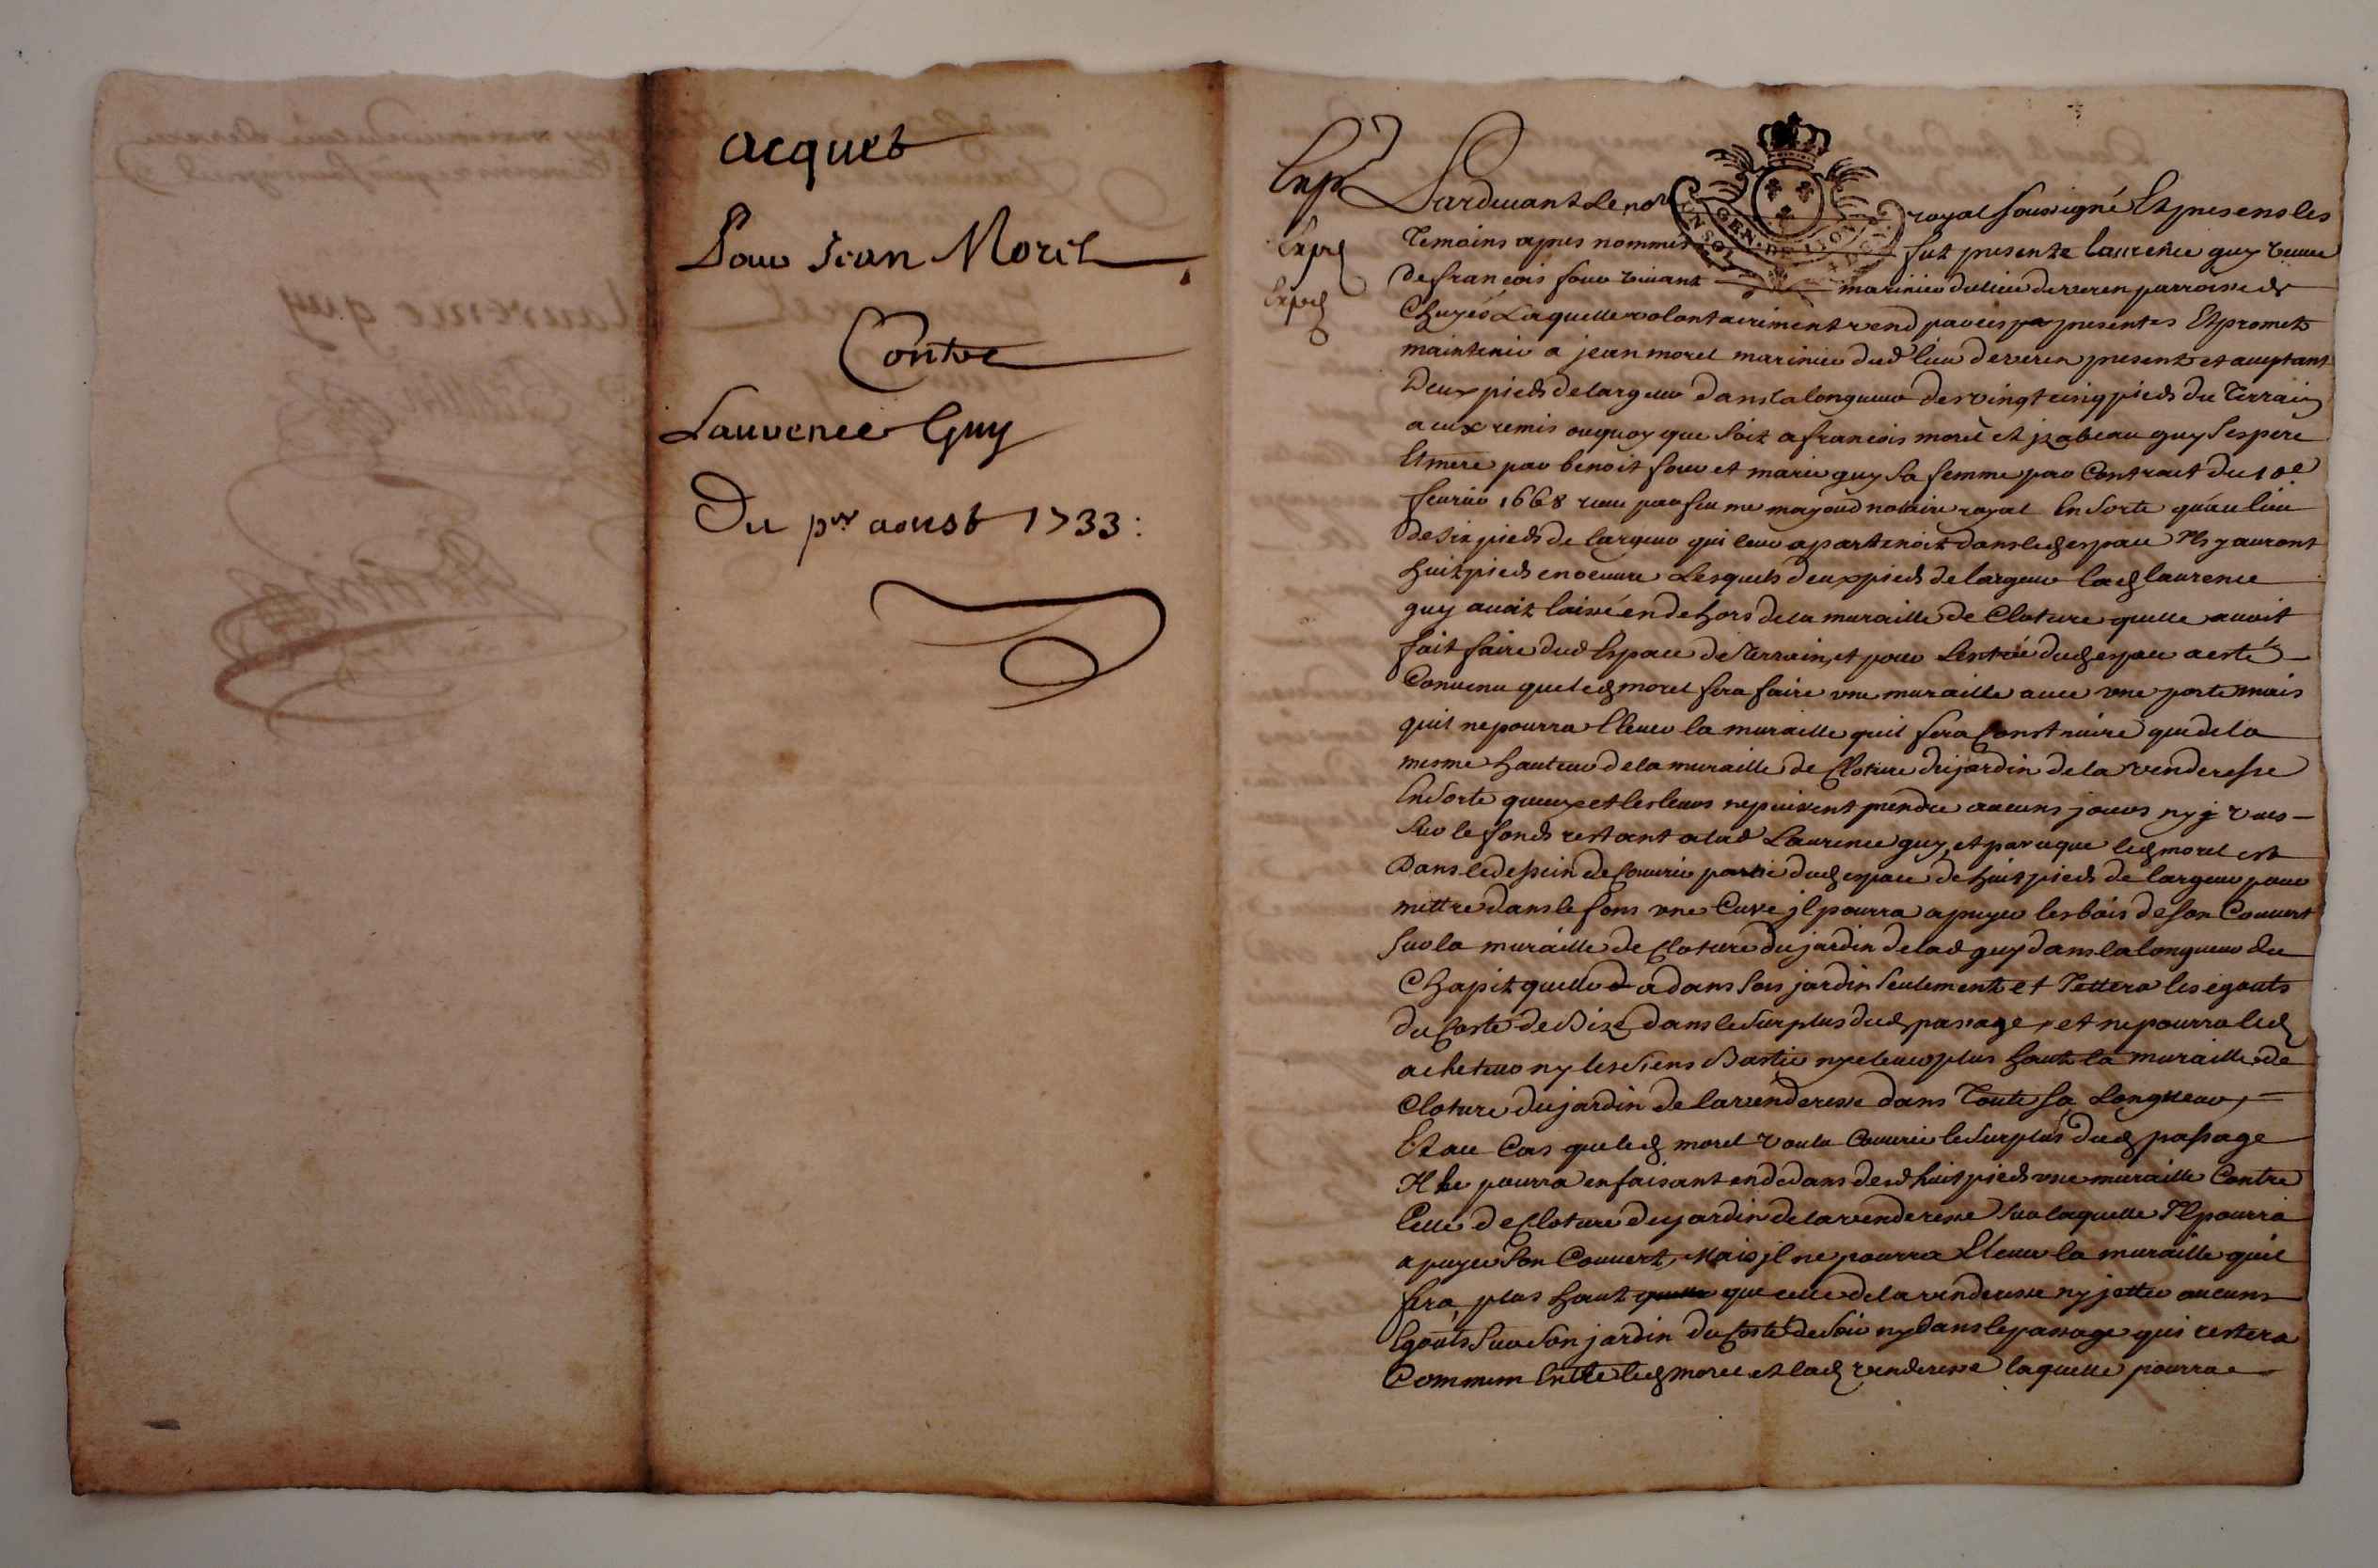 acquet
Pour Jean Morel
Contre
Laurence Guy
Du pr aoust 1733:
Exp
Expd
Expd
Pardevant le nore royal soussigné Et presens les
UN SOL GEN. DE LYON
Temoins apres nommés fut presente laurence guy veuve
de francois four vivant marinier du lieu de veren parroisse de
Chuyes Laquelle volontairement vend par ces presentes Et promet
maintenir a jean morel marinier dud lieu de veren present et aceptant
Deux pieds de largeur dans la longueur de vingt cinq pieds du Terrain
a eux remis ou quoy que soit a francois morel et jzabeau guy ses pere
Et mere par benoit four et marie guy sa femme par Contract du 10e
fevrier 1668 receu par feu me mayoud notaire royal En sorte qu'au lieu
de six pieds de largeur qui leur apartenoit dans led espace Ils y auront
huit pieds en oeuvre Lesquels deux pieds de largeur lad laurence
guy avoit laissé en dehors de la muraille de Cloture quelle avoit
fait faire dud Espace de Terrain, et pour Lentrée dud espace a esté
Convenu que led morel fera faire une muraille avec une porte mais
quil ne pourra Elever la muraille quil fera Construire que de la
mesme hauteur de la muraille de Cloture du jardin de la venderesse
En sorte queux et les leurs ne puissent prendre aucuns jours ny vues
sur le fonds restant a lad Laurence guy, et parceque led morel est
Dans le dessein de Couvrir partie dud espace de huit pieds de largeur pour
mettre dans le fons une Cuve jl pourra apuyer les bois de son Couvert
sur la muraille de Cloture du jardin de lad guy dans la longueur du
Chapit quelle a dans son jardin seulement et Jettera les egouts
du Costé de Bize dans le surplus dud passage, et ne pourra led
acheteur ny les siens Bastir ny elever plus haut la muraille de
Cloture du jardin de la venderesse dans Toute sa Longueur,
Et au Cas que led morel voulu Couvrir le surplus dud passage
Il le pourra en faisant en dedans desd huit pieds une muraille Contre
Celle de Cloture du jardin de la venderesse sur laquelle Il pourra
apuyer son Couvert, Mais jl ne pourra Elever la muraille quil
fera plus haut que celle de la venderesse ny jetter aucuns
Egouts sur son jardin du Costé de soir ny dans le passage qui restera
Commun Entre led morel et lad venderesse laquelle pourra